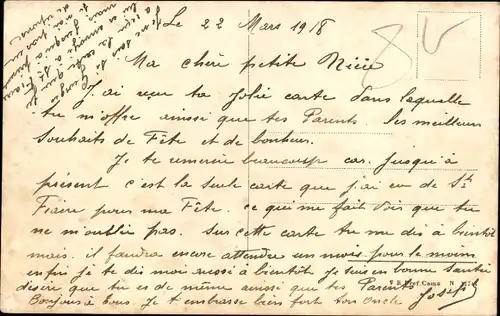 Le 22 Mars 1918
Ma chère petite Nièce
J'ai reçu ta jolie carte dans laquelle
tu m'offre ainssi que tes Parents les meilleurs
souhaits de Fête et de bonheur.
Je te remercie beaucoup car jusqu'à
présent c'est la seule carte que j'ai eu de St
Fiacre pour ma Fête. ce qui me fait voir que tu
ne m'oublie pas. Sur cette carte tu me dis à bientôt
mais il faudra encore attendre un mois pour le moins
enfin je te dis moi aussi à bientôt Je suis en bonne Santée
désire que tu es de même ainssi que tes Parents
Bonjour à tous. Je t'embrasse bien fort ton oncle Joseph